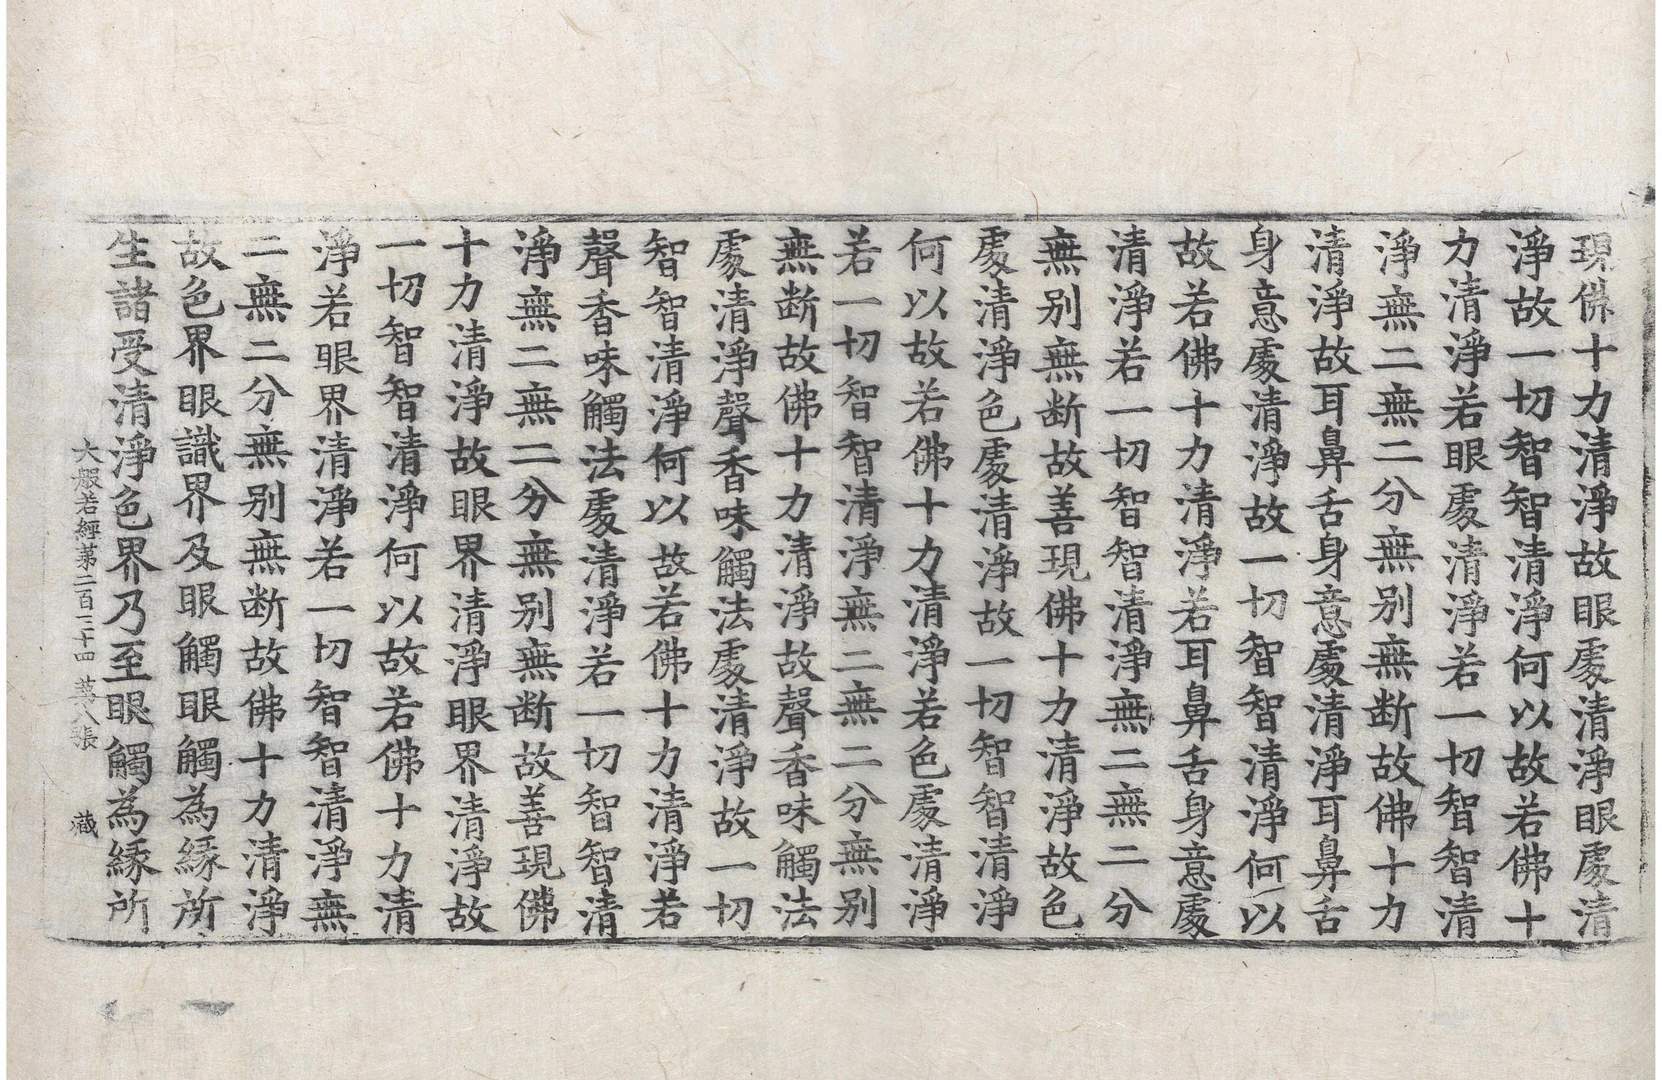 現佛十力清淨故眼處清淨眼處清
淨故一切智智清淨何以故若佛十
力清淨若眼處清淨若一切智智清
淨無二無二分無別無斷故佛十力
清淨故耳鼻舌身意處清淨耳鼻舌
身意處清淨故一切智智清淨何以
故若佛十力清淨若耳鼻舌身意處
清淨若一切智智清淨無二無二分
無別無斷故善現佛十力清淨故色
處清淨色處清淨故一切智智清淨
何以故若佛十力清淨若色處清淨
若一切智智清淨無二無二分無別
無斷故佛十力清淨故聲香味觸法
處清淨聲香味觸法處清淨故一切
智智清淨何以故若佛十力清淨若
聲香味觸法處清淨若一切智智清
淨無二無二分無別無斷故善現佛
十力清淨故眼界清淨眼界清淨故
一切智智清淨何以故若佛十力清
淨若眼界清淨若一切智智清淨無
二無二分無別無斷故佛十力清淨
故色界眼識界及眼觸眼觸為緣所
生諸受清淨色界乃至眼觸為緣所
大般若經第二百三十四 第八張 藏